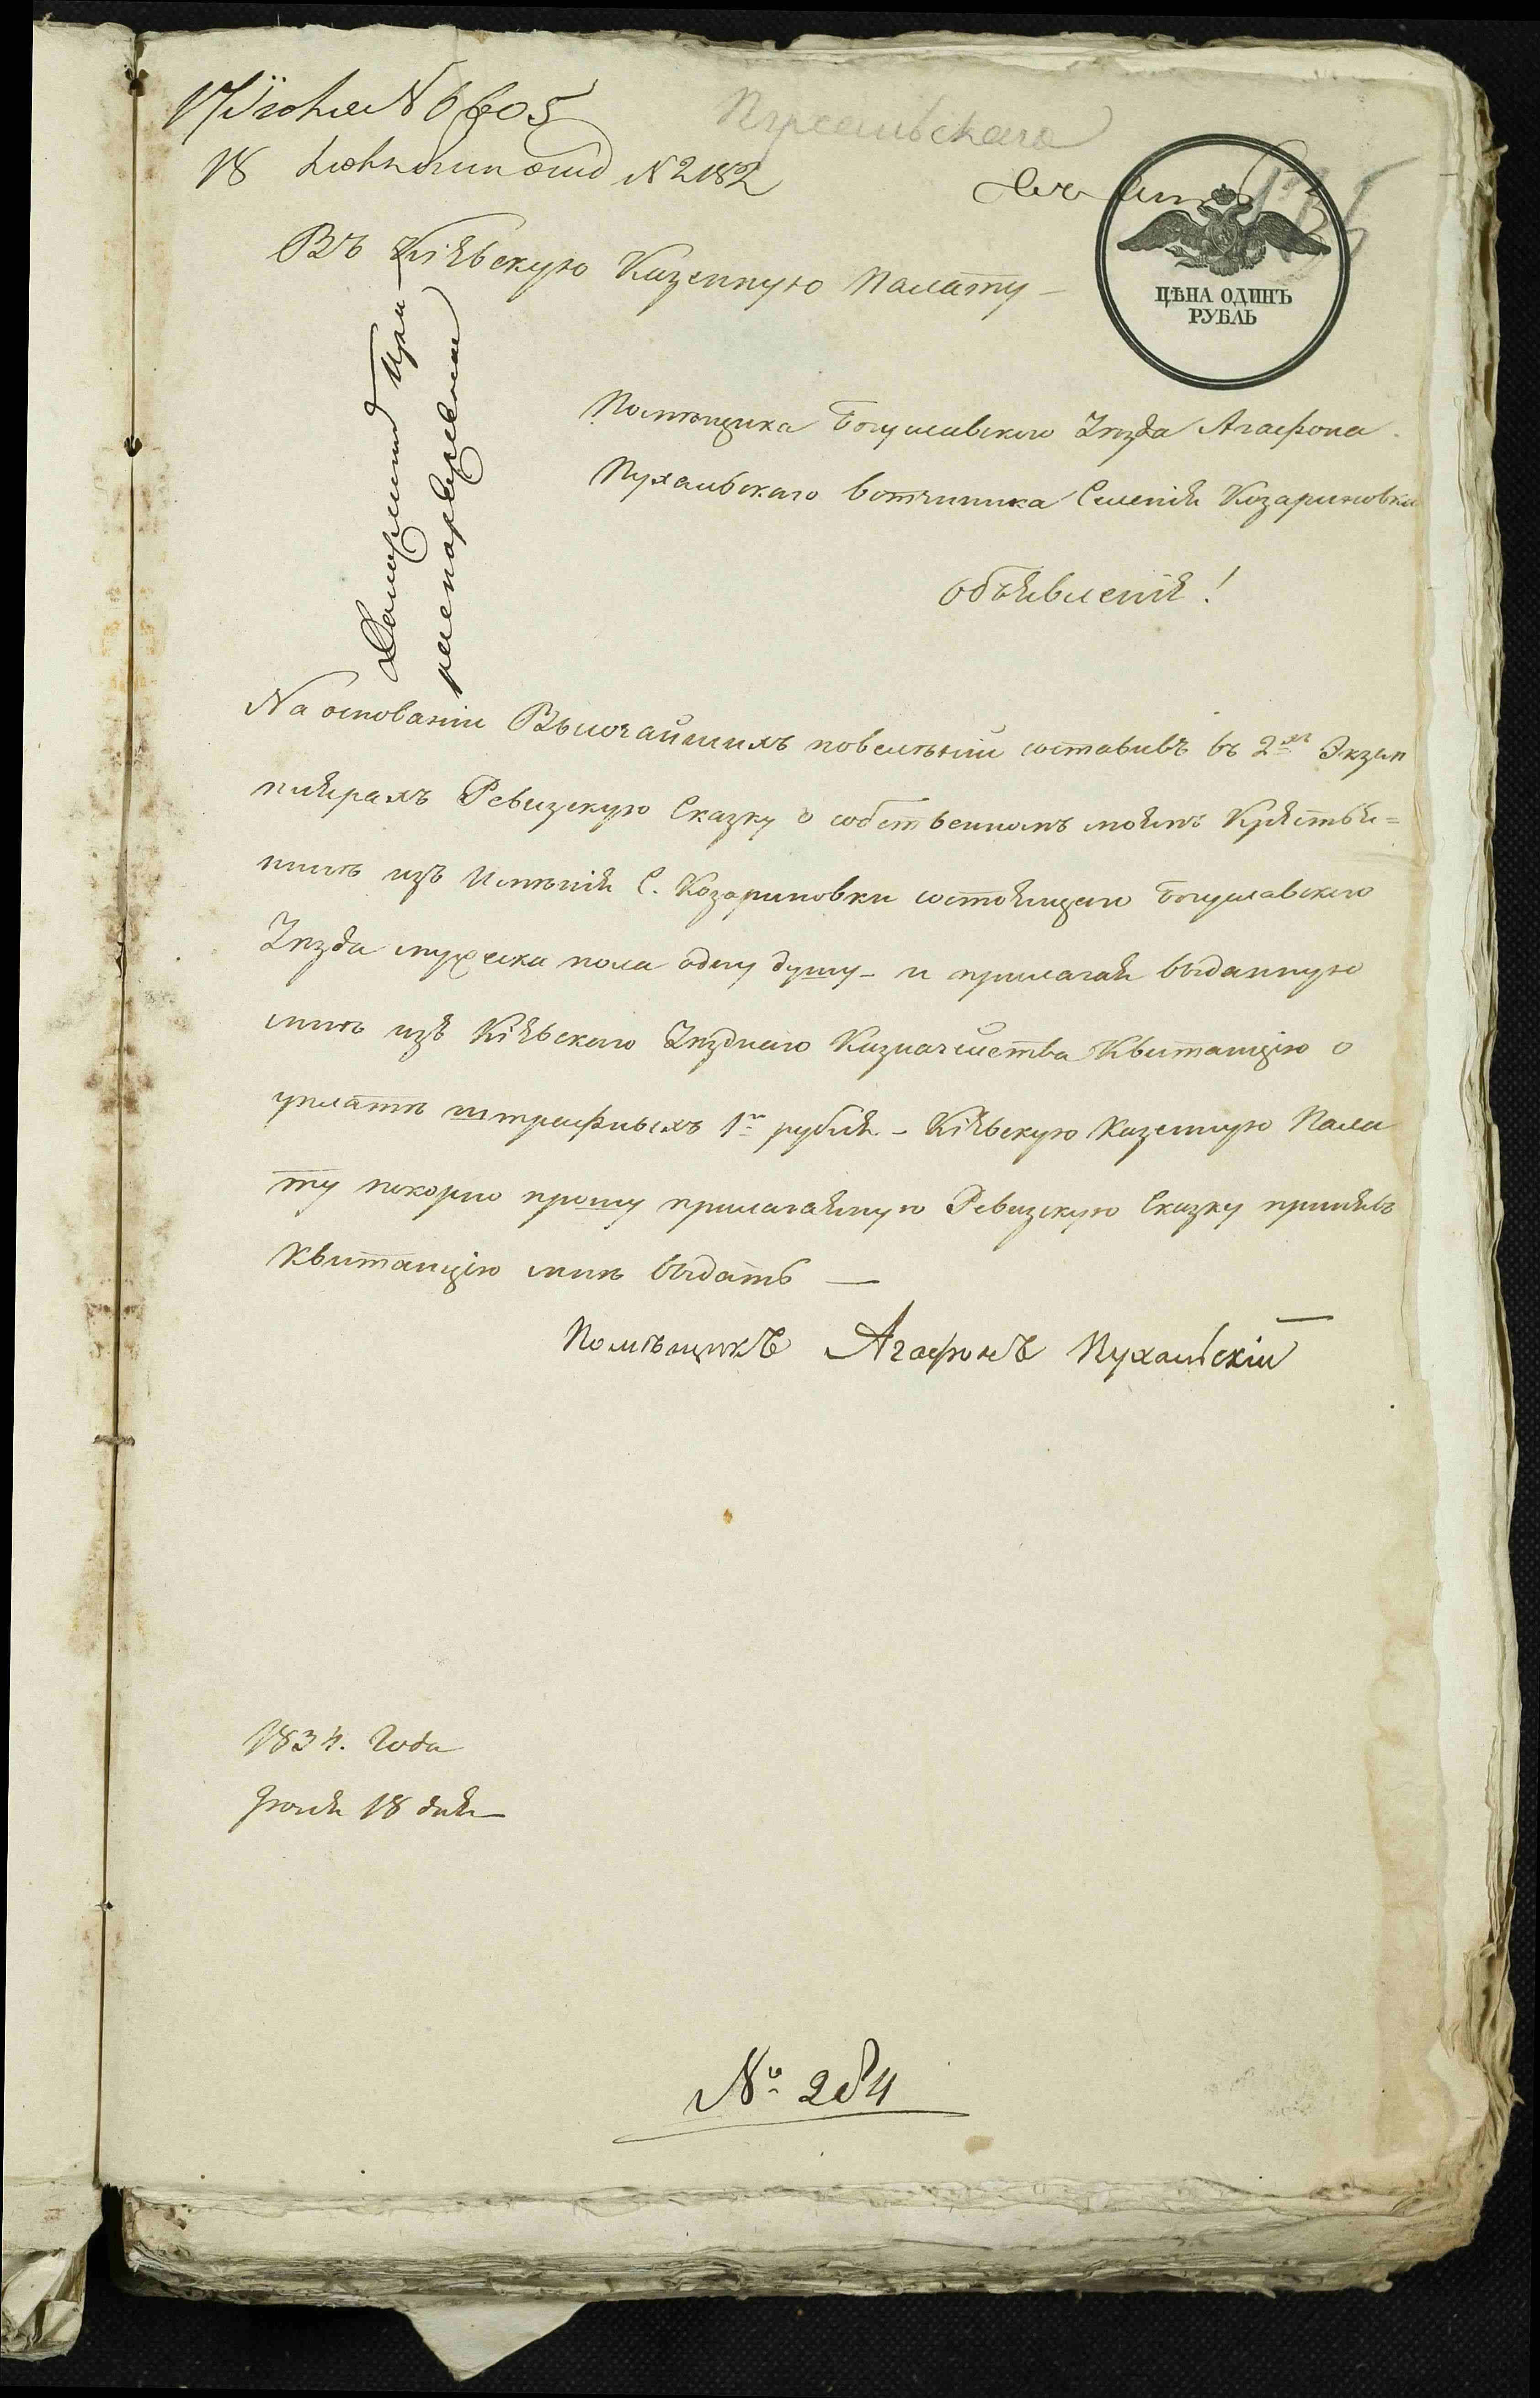 17 Іюня № 6605
18 № 2182
Пухальскаго
Въ Кіевскую Казенную Палату –
ЦѢНА ОДИНЪ
РУБЛЬ
Помѣщика Богуславского Уѣзда Агафона
Пухальского вотчинника Селенія Козариновки
объявленіе!
На основаніи Высочайшихъ повелѣній составивъ въ 2хъ Экзем
плярахъ Ревизскую Сказку о собственномъ моемъ Крестья=
нинѣ изъ Имѣнія С. Козариновки состоящего Богуславского
Уѣзда мужеска пола одну душу – и прилагая выданную
мнѣ изъ Кіевского Уѣздного Казначейства Квитанцію о
уплатѣ штрафныхъ 1го рубля – Кіевскую Казенную Пала
ту покорно прошу прилагаемую Ревизскую Сказку принявъ
Квитанцію мнѣ выдать —
Помѣщикъ Агафонъ Пухальскій
1834. Года
18 дня
№ 284